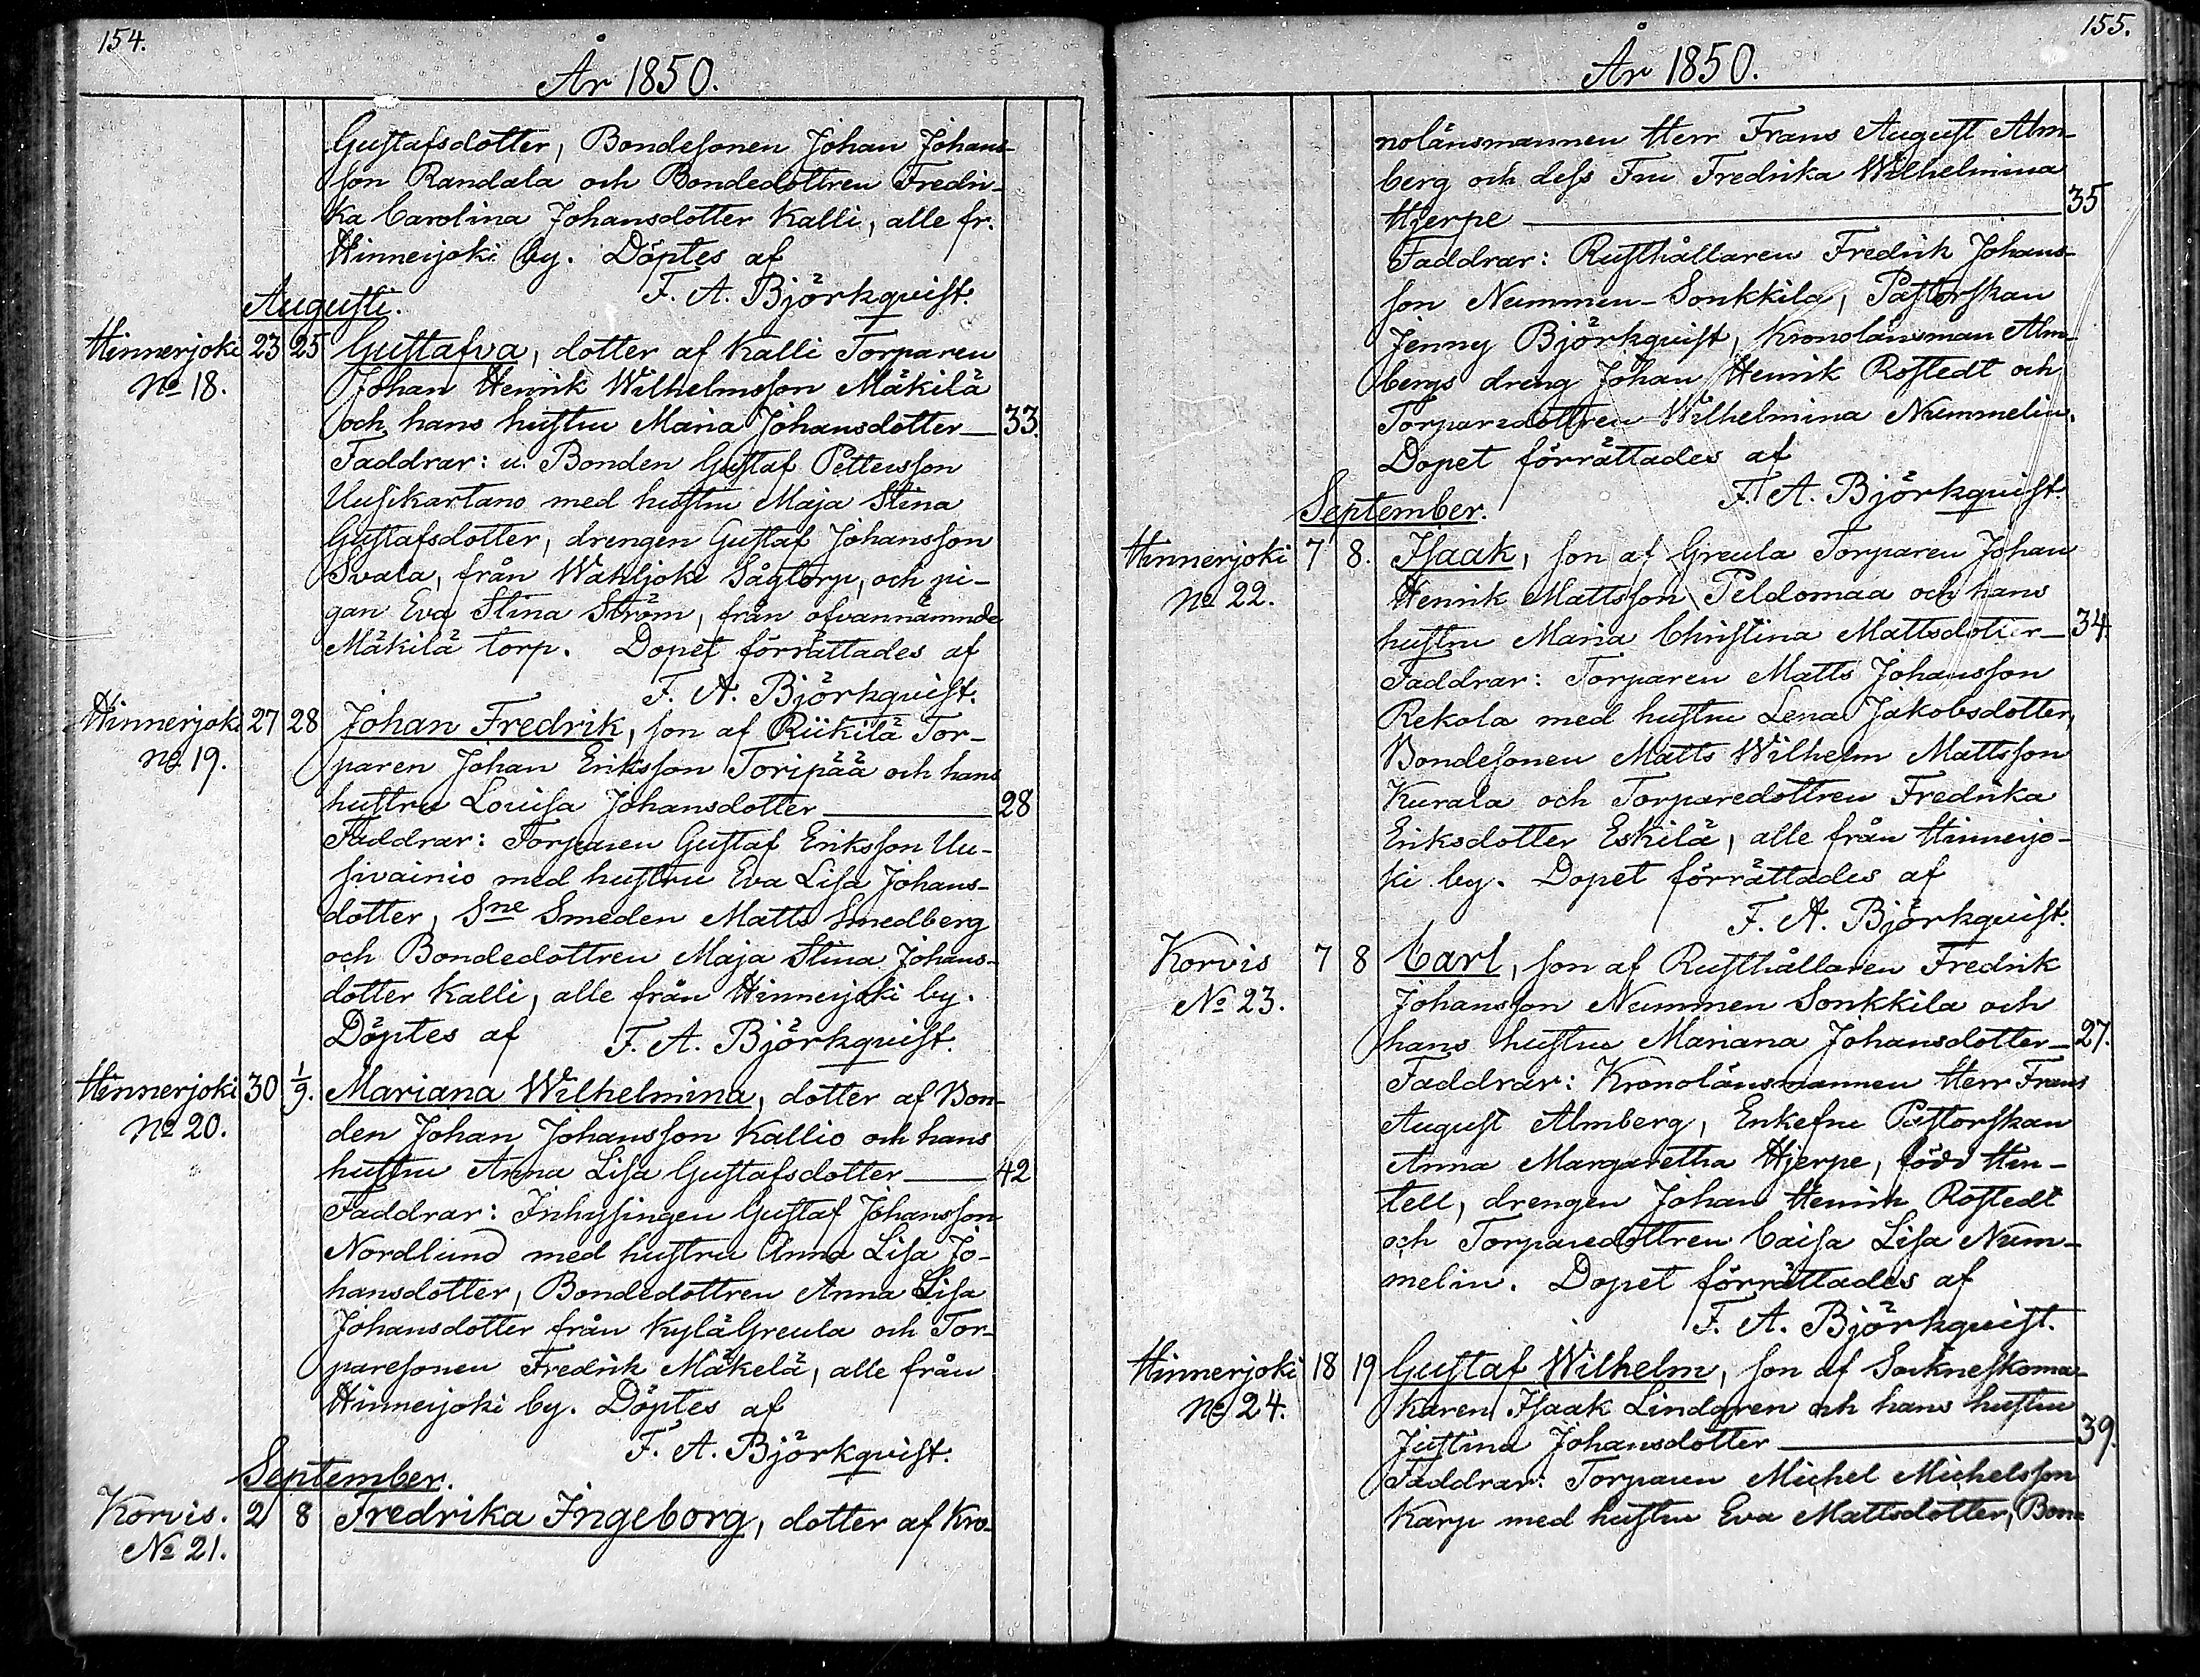 154.
År 1850.
Gustafsdotter, Bondesonen Johan Johans-
son Randala och Bondedottren Fredri-
ka Carolina Johansdotter Kalli, alle fr.
Hinnerjoki by. Döptes af
F. A. Björkqvist.
Augusti.
Hinnerjoki 23 25 Gustafva, dotter af Kalli Torparen
No 18. Johan Henrik Wilhelmsson Mäkilä
och hans hustru Maria Johansdotter — 33.
Faddrar: u. Bonden Gustaf Pettersson
Uusikartano med hustru Maja Stina
Gustafsdotter, drengen Gustaf Johansson
Svala, från Wahljoki Sågtorp, och pi-
gan Eva Stina Ström, från ofvannämnde
Mäkilä torp. Dopet förrättades af
F. A. Björkqvist.
Hinnerjoki 27 28 Johan Fredrik, son af Riikilä Tor-
No 19. paren Johan Eriksson Toripää och hans
hustru Lovisa Johansdotter — 28
Faddrar: Torparen Gustaf Eriksson Uu-
sivainio med hustru Eva Lisa Johans-
dotter, Sne Smeden Matts Smedberg
och Bondedottren Maja Stina Johans-
dotter Kalli, alle från Hinnerjoki by.
Döptes af F. A. Björkqvist.
Hinnerjoki 30 1/9. Mariana Wilhelmina, dotter af Bon-
No 20. den Johan Johansson Kallio och hans
hustru Anna Lisa Gustafsdotter — 42
Faddrar: Inhysingen Gustaf Johansson
Nordlund med hustru Anna Lisa Jo-
hansdotter, Bondedottren Anna Lisa
Johansdotter från KyläGreula och Tor-
paresonen Fredrik Mäkelä, alle från
Hinnerjoki by. Döptes af
F. A. Björkqvist.
September.
Korvis. 2 8 Fredrika Ingeborg, dotter af Kro-
No 21.
155.
År 1850.
nolänsmannen Herr Frans August Alm-
berg och dess Fru Fredrika Wilhelmina
Hjerpe — 35
Faddrar: Rusthållaren Fredrik Johans-
son Nummen-Sonkkila, Pastorskan
Jenny Björkqvist, Kronolänsman Alm-
bergs dreng Johan Henrik Rostedt och
Torparedottren Wilhelmina Nummelin.
Dopet förrättades af
F. A. Björkqvist.
September.
Hinnerjoki 7 8. Isaak, son af Greula Torparen Johan
No 22. Henrik Mattsson Peldomaa och hans
hustru Maria Christina Mattsdotter — 34.
Faddrar: Torparen Matts Johansson
Rekola med hustru Lena Jakobsdotter,
Bondesonen Matts Wilhelm Mattsson
Kurala och Torparedottren Fredrika
Eriksdotter Eskilä, alle från Hinnerjo-
ki by. Dopet förrättades af
F. A. Björkqvist.
Korvis 7 8 Carl, son af Rusthållaren Fredrik
No 23. Johansson Nummen Sonkkila och
hans hustru Mariana Johansdotter — 27.
Faddrar: Kronolänsmannen Herr Frans
August Almberg, Enkefru Pastorskan
Anna Margaretha Hjerpe, född Hin-
tell, drengen Johan Henrik Rostedt
och Torparedottren Caisa Lisa Num-
melin. Dopet förrättades af
F. A. Björkqvist.
Hinnerjoki 18 19 Gustaf Wilhelm, son af Sockneskoma-
No 24. karen Isaak Lindgren och hans hustru
Justina Johansdotter — 39.
Faddrar: Torparen Michel Michelsson
Karp med hustru Eva Mattsdotter, Bon-